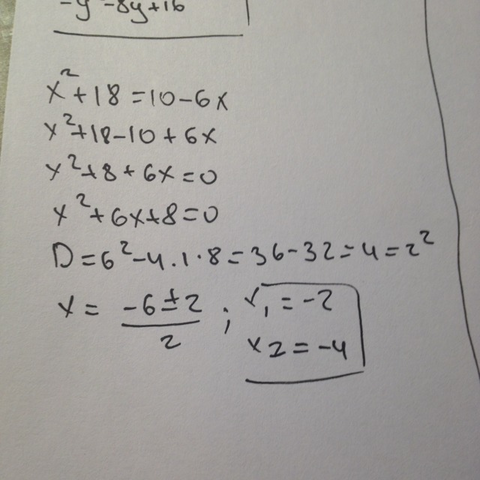 -y -8y+16
x²+18=10-6x
x²+18-10+6x
x²+8+6x=0
x²+6x+8=0
D=6²-4.1·8=36-32=4=2²
x = -6±2/2 ; x₁ = -2
x2=-4